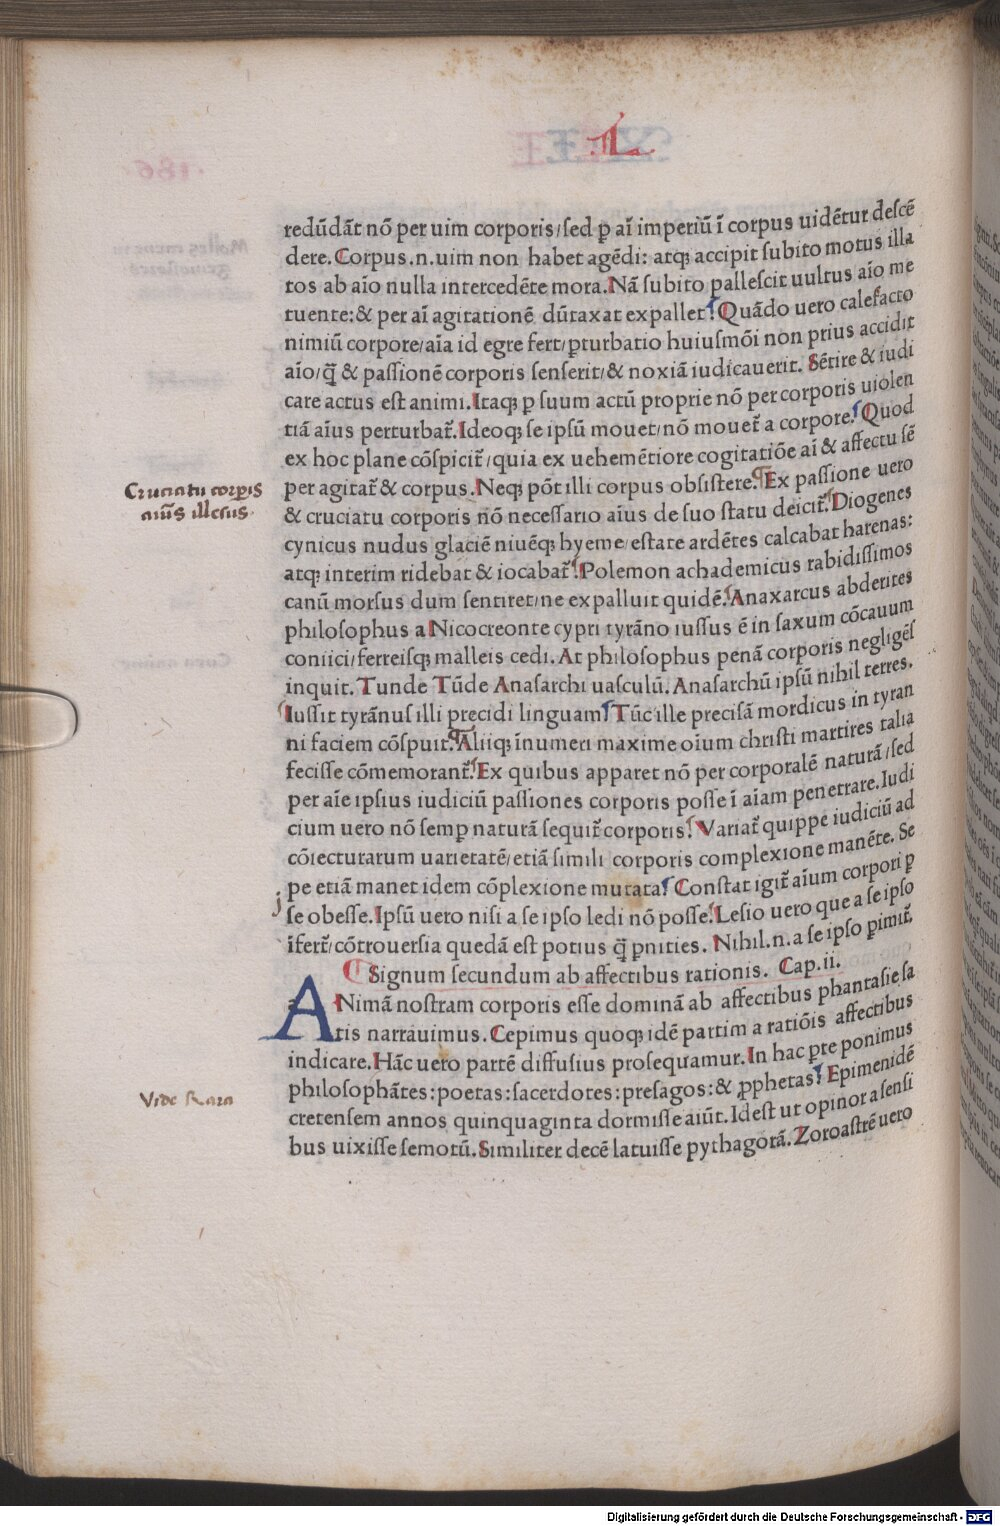 .L.
redũdãt nõ per uim corporis/sed ꝑ aĩ imperiũ ĩ corpus uidẽtur descẽ
dere. Corpus.n.uim non habet agẽdi: atqꝫ accipit subito motus illa
tos ab aĩo nulla intercedẽte mora. Nã subito pallescit uultus aĩo me
tuente: & per aĩ agitationẽ dũtaxat expallet. Quãdo uero calefacto
nimiũ corpore/aĩa id egre fert/ꝑturbatio huiusmõi non prius accidit
aĩo/q̃ & passionẽ corporis senserit/& noxiã iudicauerit. Sẽtire & iudi
care actus est animi. Itaqꝫ ꝑ suum actũ proprie nõ per corporis uiolen
tiã aĩus perturbat̃. Ideoqꝫ se ipsũ mouet/nõ mouet̃ a corpore. Quod
ex hoc plane cõspicit̃/quia ex uehemẽtiore cogitatiõe aĩ & affectu sẽ
per agitat̃ & corpus. Neqꝫ põt illi corpus obsistere. Ex passione uero
& cruciatu corporis nõ necessario aĩus de suo statu deicit̃. Diogenes
cynicus nudus glaciẽ niuẽqꝫ hyeme/estate ardẽtes calcabat harenas:
atqꝫ interim ridebat & iocabat̃. Polemon achademicus rabidissimos
canũ morsus dum sentiret/ne expalluit quidẽ. Anaxarcus abderites
philosophus a Nicocreonte cypri tyrãno iussus ẽ in saxum cõcauum
coniici/ferreisqꝫ malleis cedi. At philosophus penã corporis negligẽs
inquit. Tunde Tũde Anasarchi uasculũ. Anasarchũ ipsũ nihil terres.
Iussit tyrãnus illi precidi linguam. Tũc ille precisã mordicus in tyran
ni faciem cõspuit. Aliiqꝫ ĩnumeri maxime oĩum christi martires talia
fecisse cõmemorant̃. Ex quibus apparet nõ per corporalẽ naturã/sed
per aĩe ipsius iudiciũ passiones corporis posse ĩ aĩam penetrare. Iudi
cium uero nõ semꝑ naturã sequit̃ corporis. Variat̃ quippe iudiciũ ad
cõiecturarum uarietatẽ/etiã simili corporis complexione manẽte. Se
pe etiã manet idem cõplexione mutata. Constat igit̃ aĩum corpori ꝑ
se obesse. Ipsũ uero nisi a se ipso ledi nõ posse. Lesio uero que a se ipso
ĩfert̃/cõtrouersia quedã est potius q̃ ꝑnities. Nihil.n.a se ipso ꝑimit̃.
Signum secundum ab affectibus rationis. Cap.ii.
ANimã nostram corporis esse dominã ab affectibus phantasie sa
tis narrauimus. Cepimus quoqꝫ idẽ partim a ratiõis affectibus
indicare. Hãc uero partẽ diffusius prosequamur. In hac ꝑte ponimus
philosophãtes: poetas: sacerdotes: presagos: & ꝓphetas. Epimenidẽ
cretensem annos quinquaginta dormisse aiũt. Id est ut opinor a sensi
bus uixisse semotũ. Similiter decẽ latuisse pythagorã. Zoroastrẽ uero
Cruciatu corꝑis
aĩus illesus.
Vide Rara
Digitalisierung gefördert durch die Deutsche Forschungsgemeinschaft - DFG